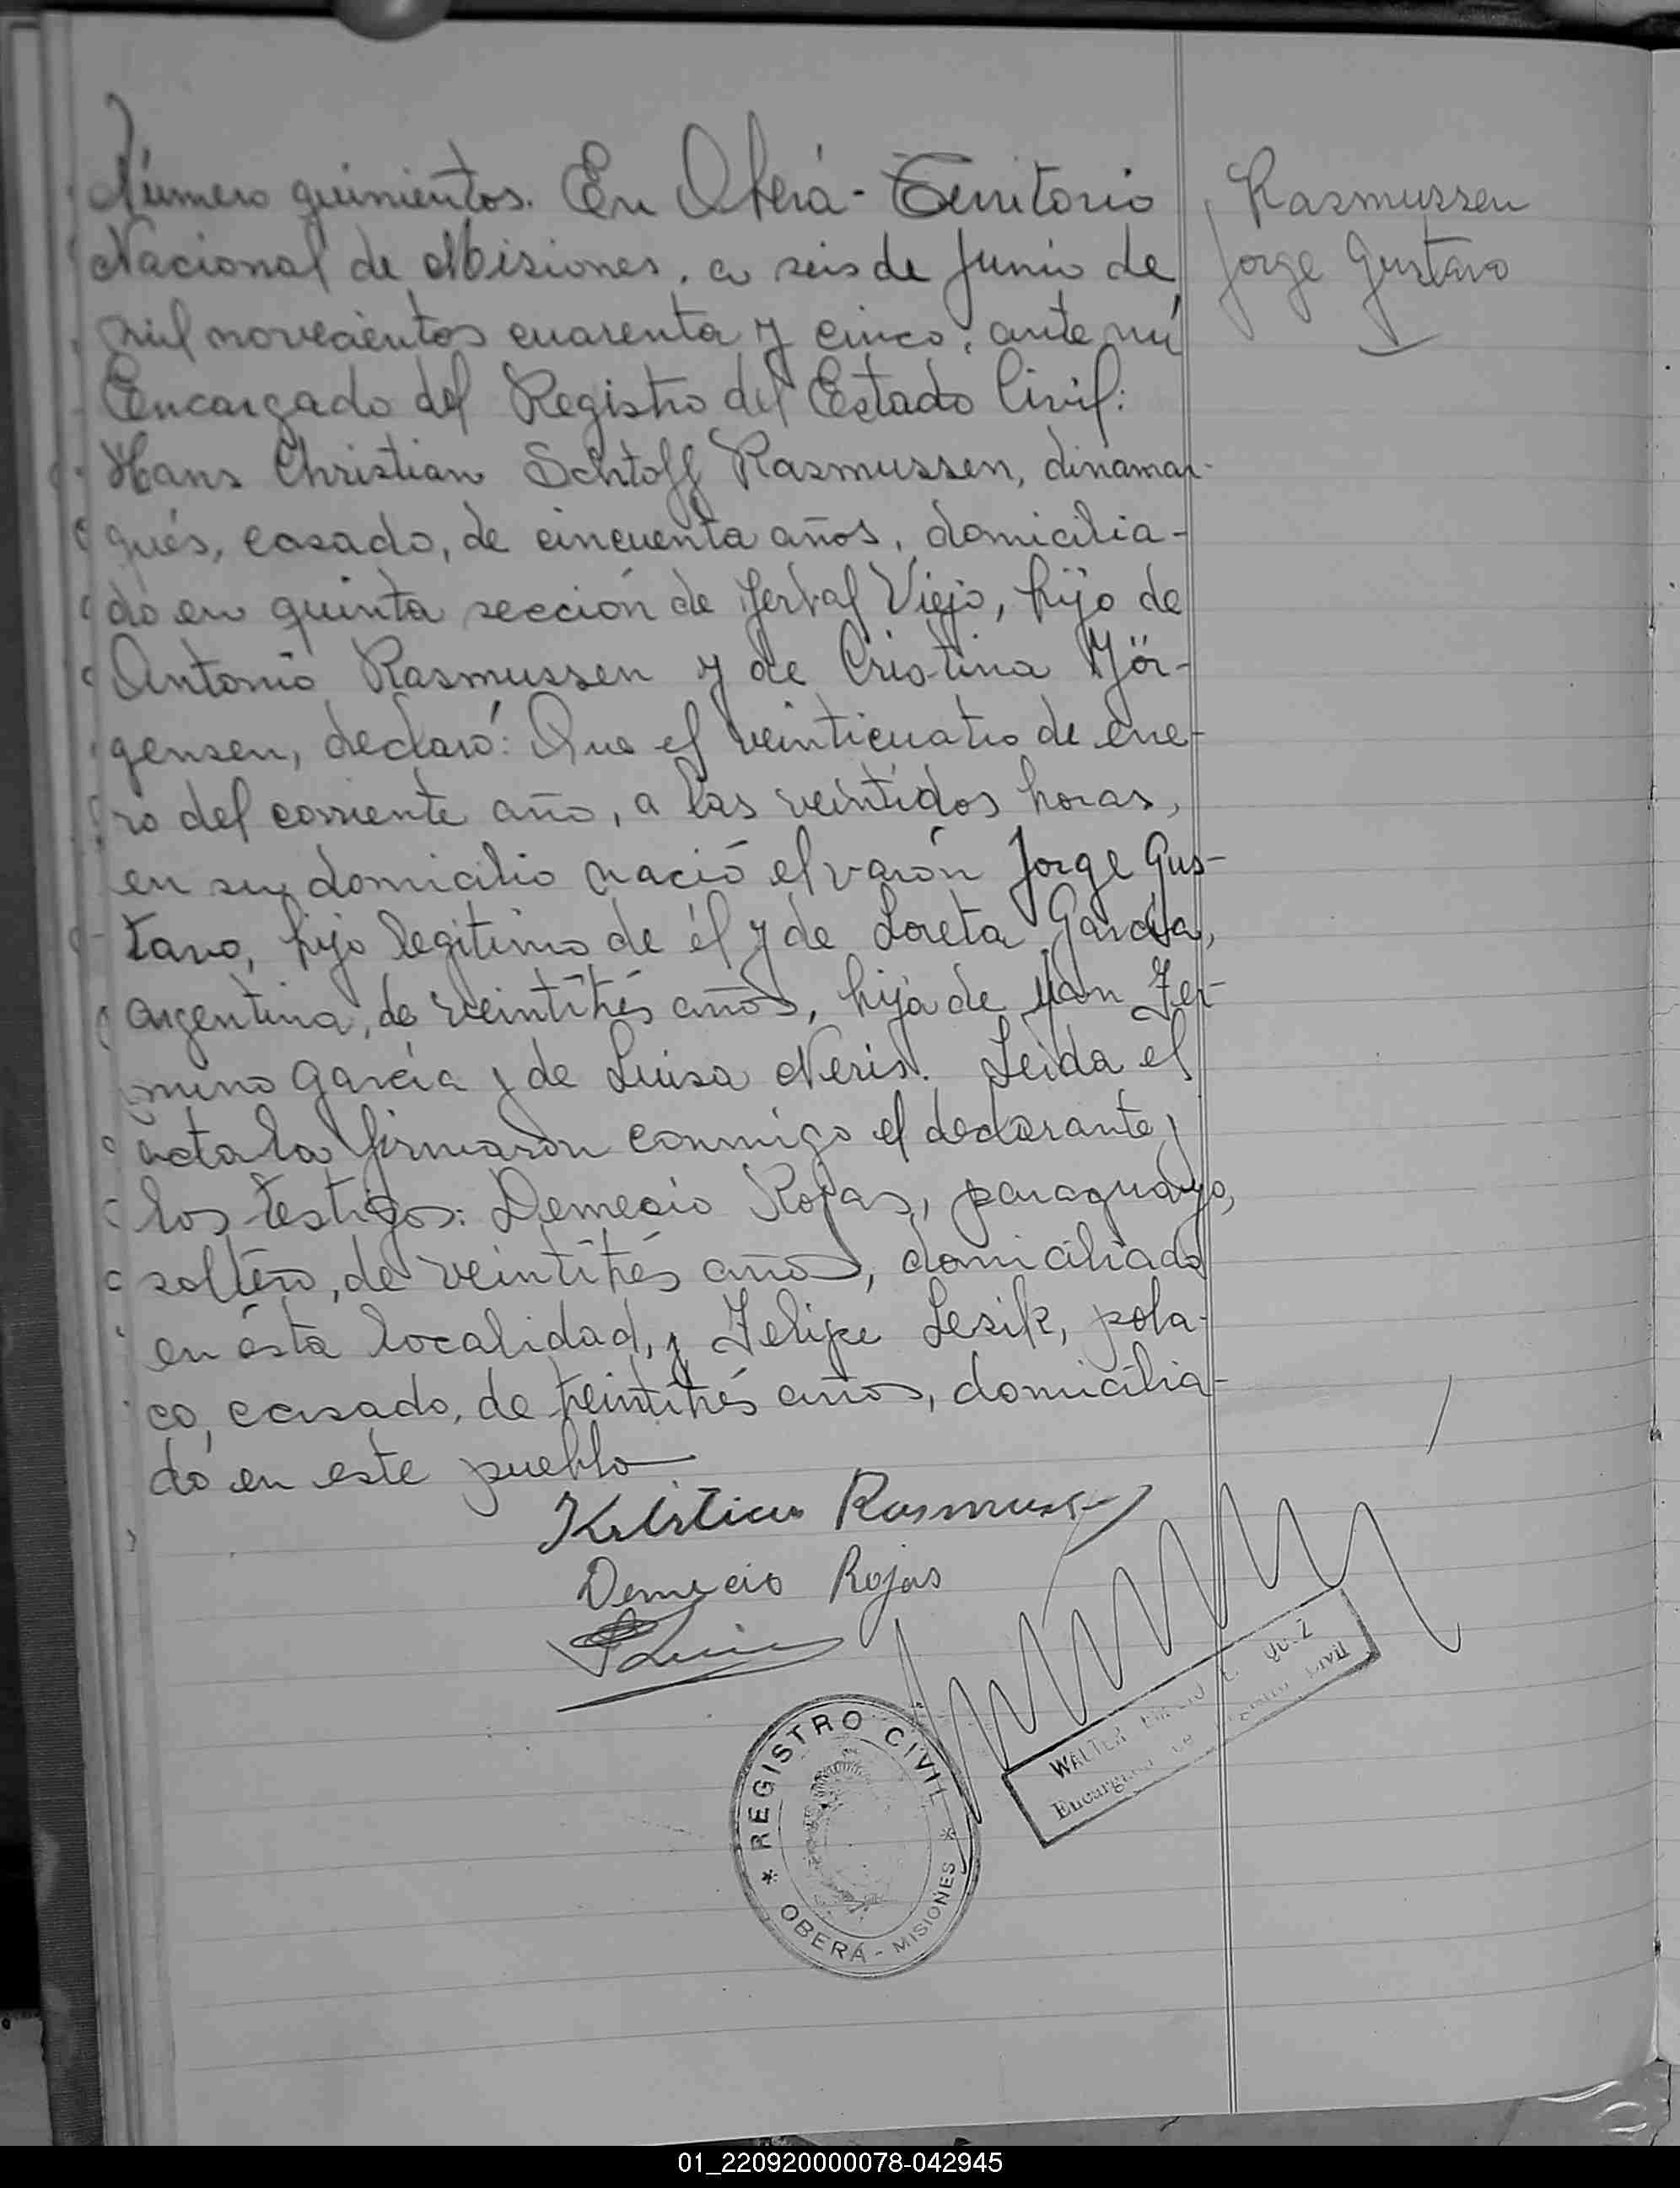 Número quinientos. En Oberá - Territorio
Nacional de Misiones, a seis de Junio de
mil novecientos cuarenta y cinco, ante mí
Encargado del Registro del Estado Civil:
Hans Christian Schtoff Rasmussen, dinamar-
qués, casado, de cincuenta años, domicilia-
do en quinta sección de Yerbal Viejo, hijo de
Antonio Rasmussen y de Cristina Yör-
gensen, declaró: Que el veinticuatro de ene-
ro del corriente año, a las veintidos horas,
en su domicilio nació el varón Jorge Gus-
tavo, hijo legitimo de él y de Loreta García,
argentina, de veintitrés años, hija de Fer-
mino García y de Luisa Neris. Leida el
acta la firmaron conmigo el declarante y
los testigos: Demecio Rojas, paraguayo,
soltero, de veintitrés años, domiciliado
en ésta localidad, y Felipe Lesik, pola-
co, casado, de treintitrés años, domicilia-
do en este pueblo
Rasmussen
Jorge Gustavo
Rasmussen
Demecio Rojas
REGISTRO CIVIL
OBERÁ - MISIONES
WALTER
Encargado Civil
01_220920000078-042945